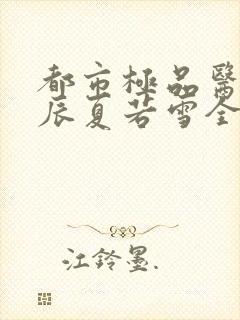 都市極品醫
辰夏若雪全
江鈴墨.